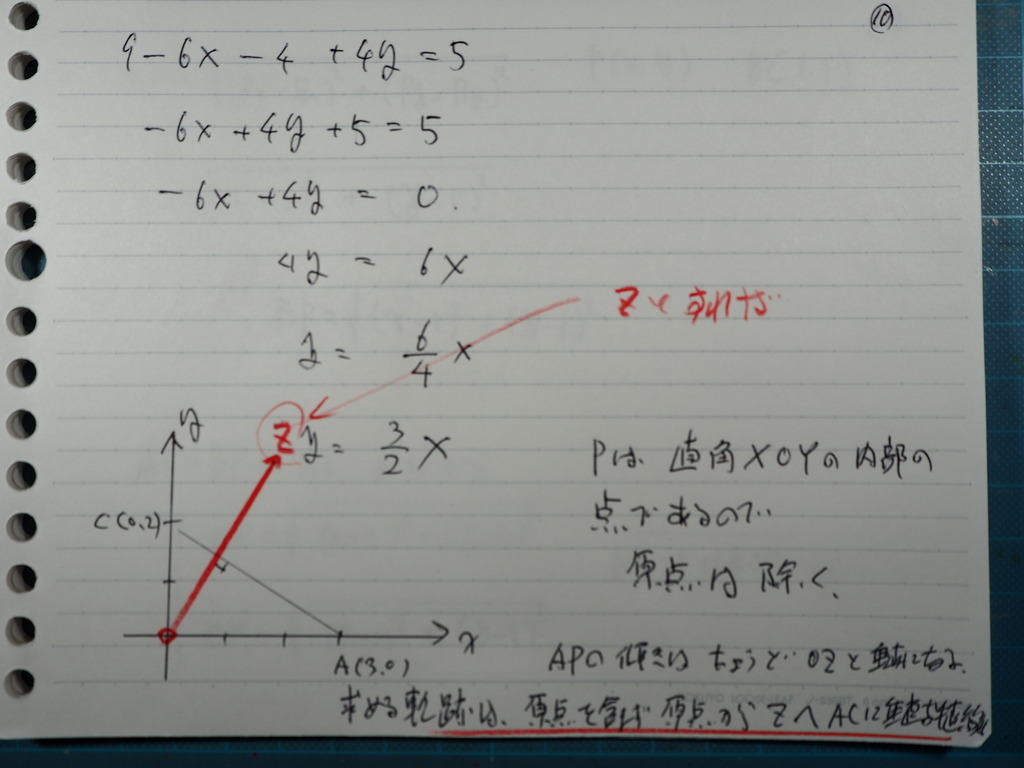 ⑩
9 - 6x - 4 + 4y = 5
- 6x + 4y + 5 = 5
- 6x + 4y = 0.
4y = 6x
Zとすれば
y = 6/4 x
y
Z
y = 3/2 x
Pは 直角XOYの内部の
C(0,2)
点であるので
原点は除く、
x
A(3,0)
APの傾きは ちょうど OZと
求める軌跡は、原点を 原点からZへACに